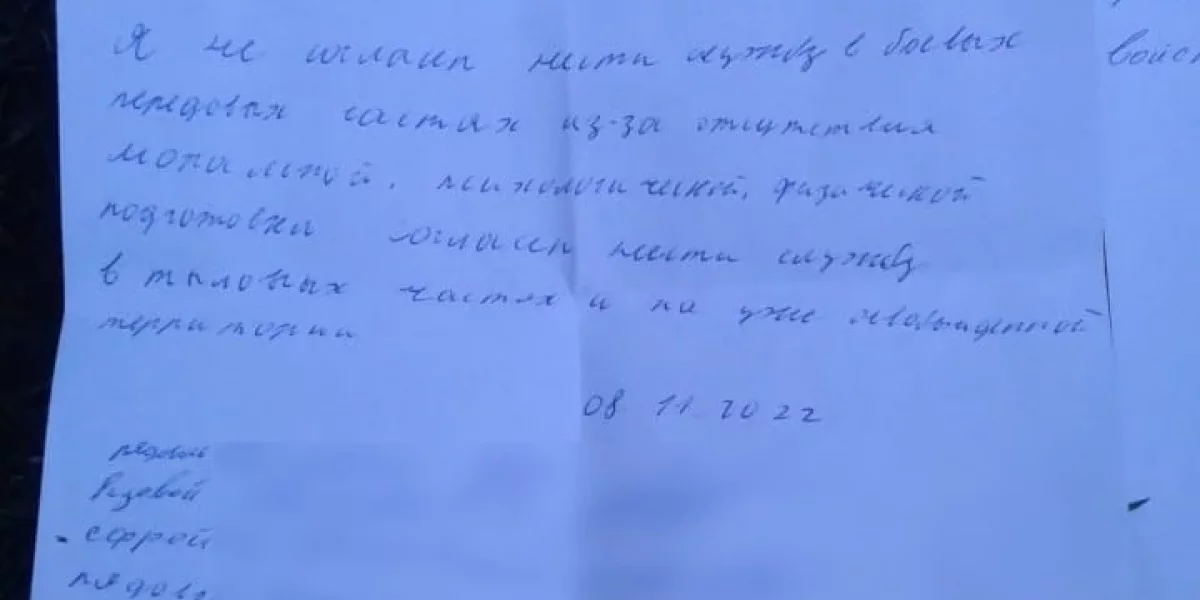 Я не согласен нести службу в боевых
передовых частях из-за отсутствия
моральной, психологической, физической
подготовки согласен нести службу
в тыловых частях и на уже освобожденной
территории
08 11 2022
рядовой
рядовой
ефрей
рядов
войс